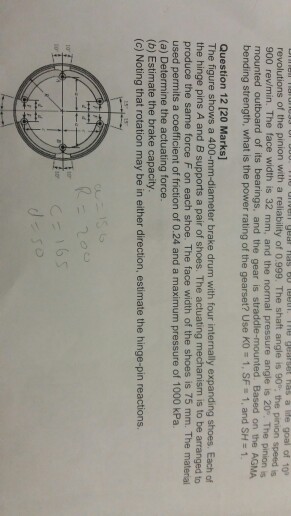 revolutions of the pinion with a reliability of 0.999. The shaft angle is 90°, the pinion speed is
900 rev/min. The face width is 32 mm, and the normal pressure angle is 20°. The pinion is
mounted outboard of its bearings, and the gear is straddle-mounted. Based on the AGMA
bending strength, what is the power rating of the gearset? Use K0 = 1, SF = 1, and SH = 1.
Question 12 [20 Marks]
The figure shows a 400-mm-diameter brake drum with four internally expanding shoes. Each of
the hinge pins A and B supports a pair of shoes. The actuating mechanism is to be arranged to
produce the same force F on each shoe. The face width of the shoes is 75 mm. The material
used permits a coefficient of friction of 0.24 and a maximum pressure of 1000 kPa.
(a) Determine the actuating force.
(b) Estimate the brake capacity.
(c) Noting that rotation may be in either direction, estimate the hinge-pin reactions.
R = 200
C = 165
d = 50